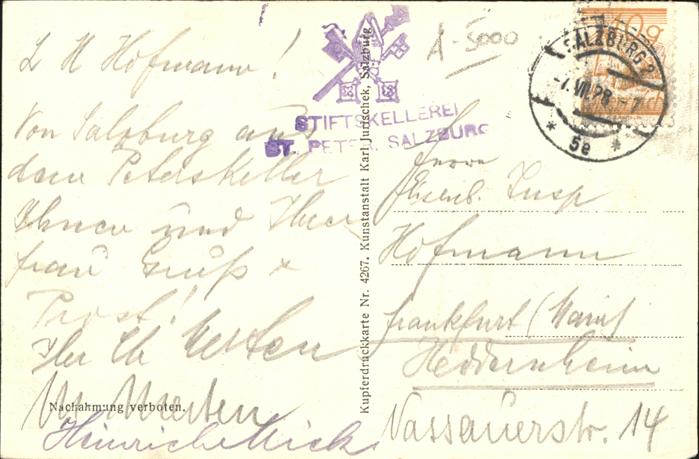 L H Hofmann!
Von Salzburg aus
dem Peterskeller
Ihnen und Ihrer
Frau Gruß &
Prost!
Ihr Ch Merten
M. Merten
Heinrich Mick
Nachahmung verboten.
STIFTSKELLEREI
ST. PETER, SALZBURG
Kupferdruckkarte Nr. 4267. Kunstanstalt Karl Jurischek, Salzburg.
A-5000
40g
SALZBURG 2
-7.VII.28 - 7
* 5e *
Herrn
Eisenb. Insp
Hofmann
Frankfurt (Main)
Heddernheim
Nassauerstr. 14